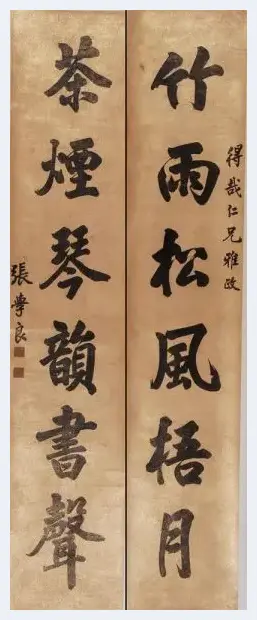 得哉仁兄雅政
竹雨松風梧月
茶煙琴韻書聲
張學良